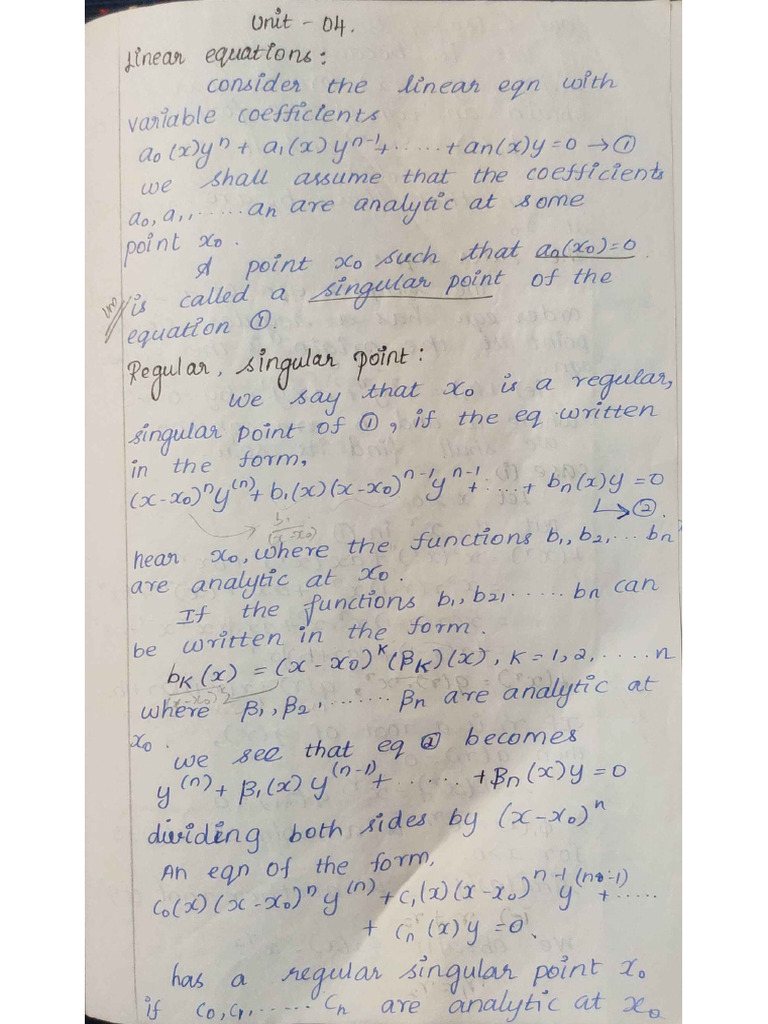 Unit - 04.
Linear equations:
consider the linear eqn with
variable coefficients
a₀(x)yⁿ + a₁(x)yⁿ⁻¹+......+an(x)y=0 → ①
we shall assume that the coefficients
a₀, a₁,.....an are analytic at some
point x₀.
A point x₀ such that a₀(x₀)=0
is called a singular point of the
equation ①.
Regular, singular point:
we say that x₀ is a regular,
singular point of ①, if the eq written
in the form,
(x-x₀)ⁿy⁽ⁿ⁾+b₁(x)(x-x₀)ⁿ⁻¹yⁿ⁻¹+...+bₙ(x)y=0
↳②.
b₁/(x-x₀)
near x₀, where the functions b₁,b₂,...bₙ
are analytic at x₀.
If the functions b₁,b₂,.....bn can
be written in the form.
bₖ(x) = (x-x₀)ᴷ(βₖ)(x), K=1,2,....n
where β₁,β₂,......βn are analytic at
x₀.
we see that eq ② becomes
y⁽ⁿ⁾+β₁(x)y⁽ⁿ⁻¹⁾+......+βn(x)y=0
dividing both sides by (x-x₀)ⁿ
An eqn of the form,
c₀(x)(x-x₀)ⁿy⁽ⁿ⁾+c₁(x)(x-x₀)ⁿ⁻¹y⁽ⁿ⁻¹⁾+.....
+ cₙ(x)y=0.
has a regular singular point x₀
if c₀,c₁,.....cn are analytic at x₀